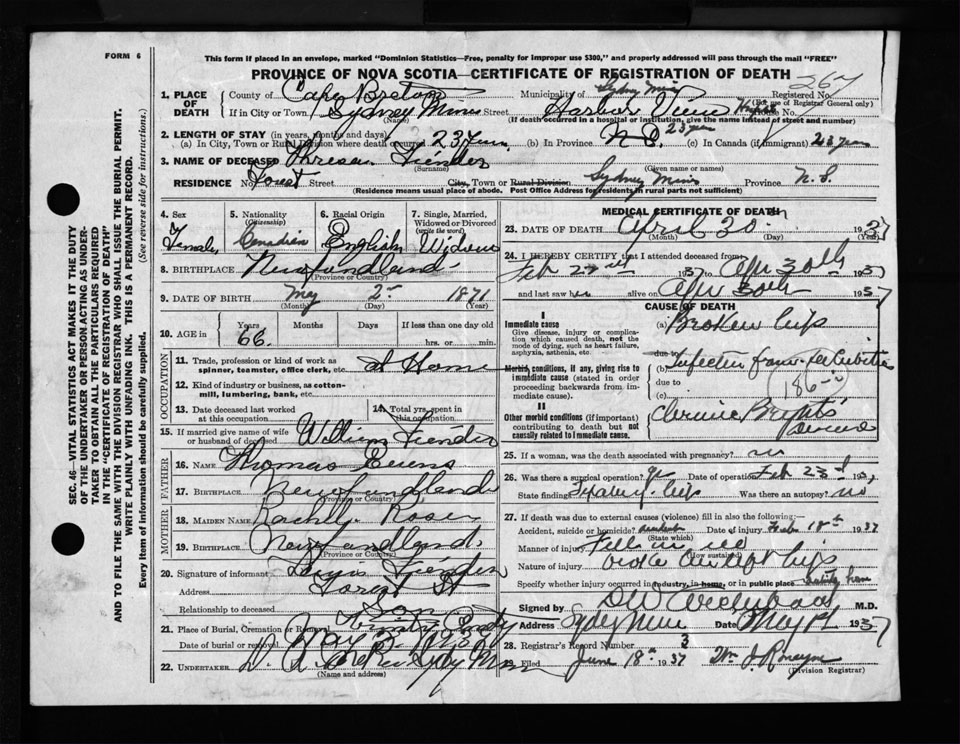 FORM 6
This form if placed in an envelope, marked "Dominion Statistics—Free, penalty for improper use $300," and properly addressed will pass through the mail "FREE"
PROVINCE OF NOVA SCOTIA—CERTIFICATE OF REGISTRATION OF DEATH
267
1. PLACE OF DEATH
County of Cape Breton Municipality of Sydney Mines Registered No.
(For use of Registrar General only)
If in City or Town, Sydney Mines Street Harbor View House No.
(Name) (If death occurred in a hospital or institution, give the name instead of street and number)
2. LENGTH OF STAY (in years, months and days)
(a) In City, Town or Rural Division where death occurred 23 years (b) In Province N.S. 23 years (c) In Canada (if immigrant) 23 years
3. NAME OF DECEASED
(Surname) (Given name or names)
RESIDENCE No. Forest Street City, Town or Rural Division Sydney Mines Province N.S.
(Residence means usual place of abode. Post Office Address for residents in rural parts not sufficient)
4. Sex Female
5. Nationality (Citizenship) Canadian
6. Racial Origin English
7. Single, Married, Widowed or Divorced (write the word) Widow
8. BIRTHPLACE Newfoundland
(Province or Country)
9. DATE OF BIRTH May 2 1871
(Month) (Day) (Year)
10. AGE in Years 66 Months Days If less than one day old hrs. or min.
OCCUPATION
11. Trade, profession or kind of work as spinner, teamster, office clerk, etc. at Home
12. Kind of industry or business, as cotton-mill, lumbering, bank, etc.
13. Date deceased last worked at this occupation
14. Total yrs. spent in this occupation
15. If married give name of wife or husband of deceased William
FATHER
16. NAME Thomas
17. BIRTHPLACE Newfoundland
(Province or Country)
MOTHER
18. MAIDEN NAME Rachel Rose
19. BIRTHPLACE Newfoundland
(Province or Country)
20. Signature of informant
Address Forest St
Relationship to deceased Son
21. Place of Burial, Cremation or Removal Trinity
Date of burial or removal May
22. UNDERTAKER
(Name and address)
MEDICAL CERTIFICATE OF DEATH
23. DATE OF DEATH April 30 1937
(Month) (Day)
24. I HEREBY CERTIFY that I attended deceased from
Feb 23rd 1937 to Apr 30th 1937
and last saw her alive on Apr 30th 1937
CAUSE OF DEATH
I
Immediate cause
Give disease, injury or complication which caused death, not the mode of dying, such as heart failure, asphyxia, asthenia, etc.
(a) Broken hip
due to
Morbid conditions, if any, giving rise to immediate cause (stated in order proceeding backwards from immediate cause).
(b) Infection from
due to
(c)
186
II
Other morbid conditions (if important) contributing to death but not causally related to immediate cause.
Chronic Bright's disease
25. If a woman, was the death associated with pregnancy? no
26. Was there a surgical operation? yes Date of operation Feb 23rd 1937
State finding hip Was there an autopsy? no
27. If death was due to external causes (violence) fill in also the following:—
Accident, suicide or homicide? accident Date of injury Feb 18th 1937
(State which)
Manner of injury Fell in
(How sustained)
Nature of injury broke left hip
Specify whether injury occurred in industry, in home, or in public place
Signed by M.D.
Address Sydney Mines Date May 1st 1937
28. Registrar's Record Number 3
Filed June 18th 1937
(Division Registrar)
SEC. 46—VITAL STATISTICS ACT MAKES IT THE DUTY OF THE UNDERTAKER OR PERSON ACTING AS UNDERTAKER TO OBTAIN ALL THE PARTICULARS REQUIRED IN THE "CERTIFICATE OF REGISTRATION OF DEATH"
AND TO FILE THE SAME WITH THE DIVISION REGISTRAR WHO SHALL ISSUE THE BURIAL PERMIT.
WRITE PLAINLY WITH UNFADING INK. THIS IS A PERMANENT RECORD.
Every item of information should be carefully supplied. (See reverse side for instructions.)